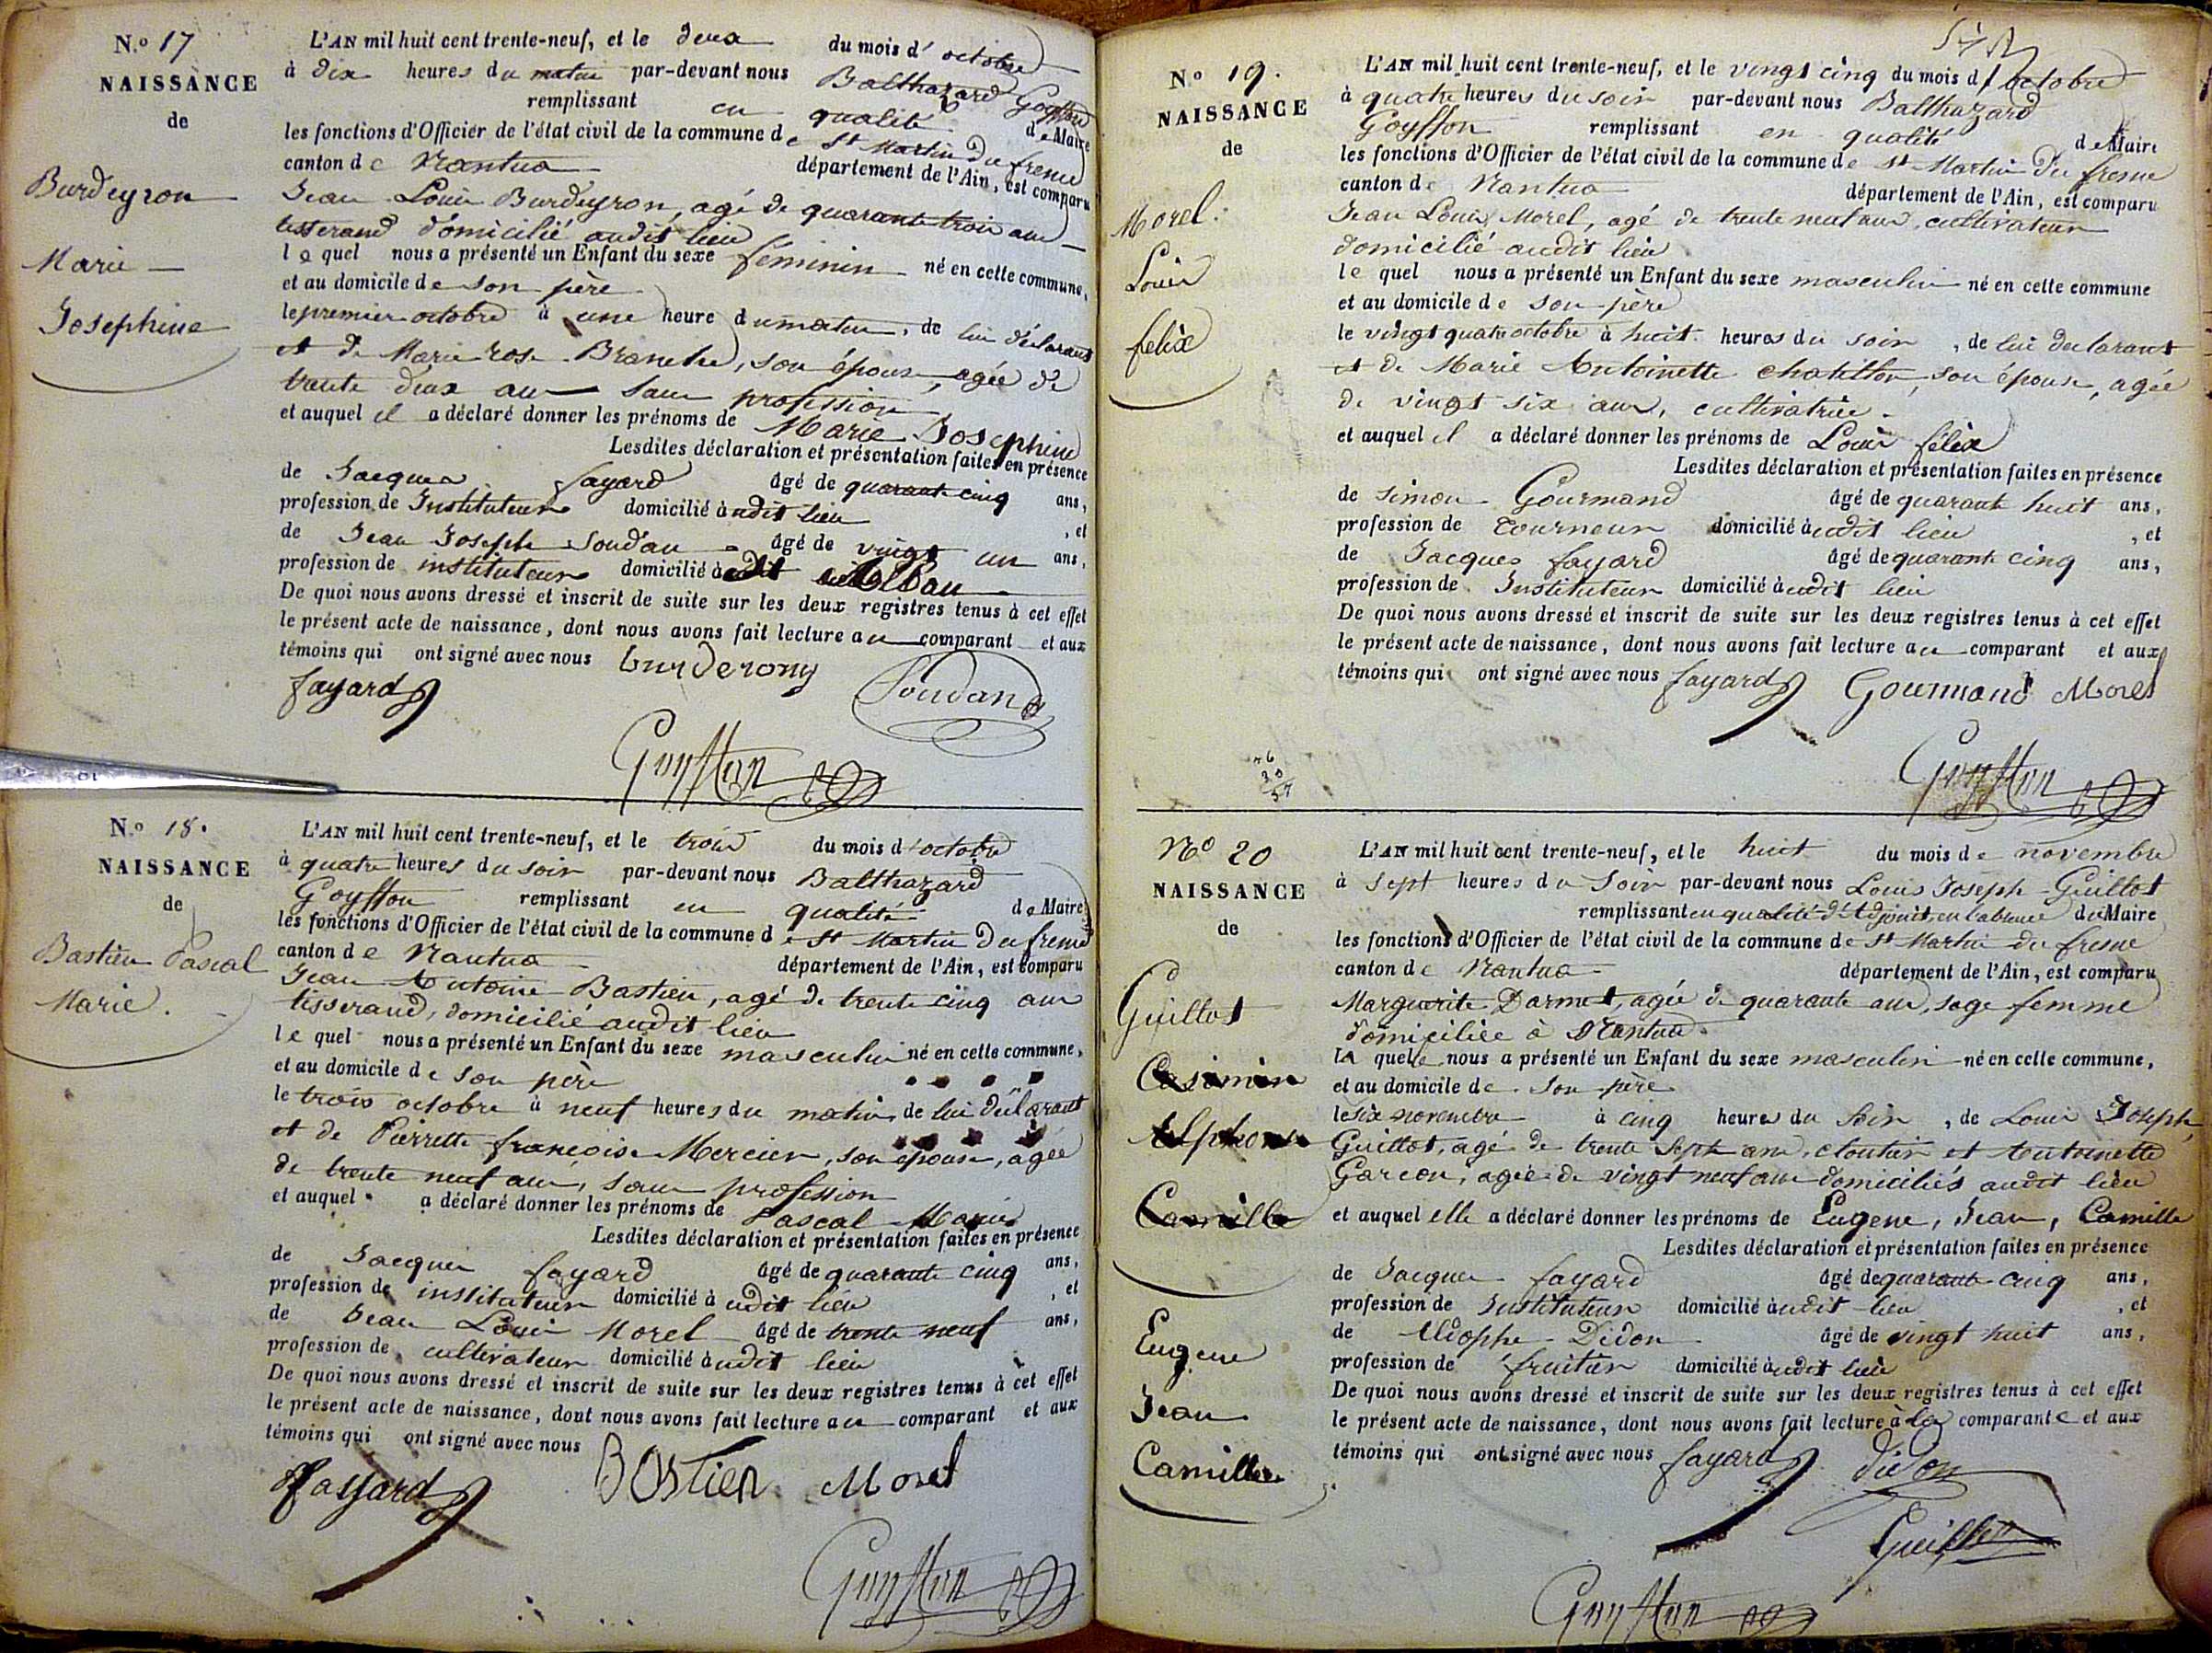 N.o 17
NAISSANCE
de
Burdeyron
Marie
Josephine
L'AN mil huit cent trente-neuf, et le deux du mois d' octobre
à dix heures du matin par-devant nous Balthazard Goyffon
remplissant en qualité de Maire
les fonctions d'Officier de l'état civil de la commune de St Martin du fresne
canton de Nantua département de l'Ain, est comparu
Jean Louis Burdeyron, agé de quarante trois ans
tisserand domicilié audit lieu
lequel nous a présenté un Enfant du sexe féminin né en cette commune,
et au domicile de son père
le premier octobre à une heure du matin, de lui déclarant
et de Marie rose Branche, son épouse, agée de
trente deux ans sans profession
et auquel il a déclaré donner les prénoms de Marie Josephine
Lesdites déclaration et présentation faites en présence
de Jacques fayard âgé de quarante cinq ans,
profession de Instituteur domicilié audit lieu , et
de Jean Joseph Soudan âgé de vingt un ans,
profession de instituteur domicilié à
De quoi nous avons dressé et inscrit de suite sur les deux registres tenus à cet effet
le présent acte de naissance, dont nous avons fait lecture au comparant et aux
témoins qui ont signé avec nous burderony
fayard Soudan
Goyffon
N.o 18.
NAISSANCE
de
Bastien Pascal
Marie.
L'AN mil huit cent trente-neuf, et le trois du mois d'octobre
à quatre heures du soir par-devant nous Balthazard
Goyffon remplissant en qualité de Maire
les fonctions d'Officier de l'état civil de la commune de St Martin du fresne
canton de Nantua département de l'Ain, est comparu
Jean Antoine Bastien, agé de trente cinq ans
tisserand, domicilié audit lieu
lequel nous a présenté un Enfant du sexe masculin né en cette commune,
et au domicile de son père
le trois octobre à neuf heures du matin, de lui déclarant
et de Pierrette françoise Mercier, son épouse, agée
de trente neuf ans, sans profession
et auquel a déclaré donner les prénoms de Pascal Marie
Lesdites déclaration et présentation faites en présence
de Jacques fayard âgé de quarante cinq ans,
profession de instituteur domicilié à udit lieu , et
de Jean Louis Morel âgé de trente neuf ans,
profession de cultivateur domicilié audit lieu
De quoi nous avons dressé et inscrit de suite sur les deux registres tenus à cet effet
le présent acte de naissance, dont nous avons fait lecture au comparant et aux
témoins qui ont signé avec nous
fayard Bastien Morel
Goyffon
No 19.
NAISSANCE
de
Morel
Louis
félix
L'AN mil huit cent trente-neuf, et le vingt cinq du mois d'octobre
à quatre heures du soir par-devant nous Balthazard
Goyffon remplissant en qualité de Maire
les fonctions d'Officier de l'état civil de la commune de St Martin du fresne
canton de Nantua département de l'Ain, est comparu
Jean Louis Morel, agé de trente neuf ans, cultivateur
domicilié audit lieu
lequel nous a présenté un Enfant du sexe masculin né en cette commune
et au domicile de son père
le vingt quatre octobre à huit heures du soir , de lui declarant
et de Marie Antoinette chatillon, son épouse, agée
de vingt six ans, cultivatrice.
et auquel il a déclaré donner les prénoms de Louis félix
Lesdites déclaration et présentation faites en présence
de Simon Gourmand âgé de quarante huit ans,
profession de tourneur domicilié audit lieu , et
de Jacques fayard âgé de quarante cinq ans,
profession de Instituteur domicilié audit lieu
De quoi nous avons dressé et inscrit de suite sur les deux registres tenus à cet effet
le présent acte de naissance, dont nous avons fait lecture au comparant et aux
témoins qui ont signé avec nous fayard Gourmand Morel
Goyffon
No 20
NAISSANCE
de
Guillot
Casimir
Alphonse
Camille
Eugene
Jean
Camille
L'AN mil huit cent trente-neuf, et le huit du mois de novembre
à sept heures du Soir par-devant nous Louis Joseph Guillot
remplissant en qualité d'Adjoint en l'absence du Maire
les fonctions d'Officier de l'état civil de la commune de St Martin du fresne
canton de Nantua département de l'Ain, est comparu
Marguerite Darmet, agée de quarante ans, sage femme
domiciliée à Nantua.
laquelle nous a présenté un Enfant du sexe masculin né en cette commune,
et au domicile de son père
le six novembre à cinq heures du soir , de Louis Joseph
Guillot, agé de trente Sept ans, cloutier et Antoinette
Garcon, agée de vingt neuf ans domiciliés audit lieu
et auquel elle a déclaré donner les prénoms de Eugene, Jean, Camille
Lesdites déclaration et présentation faites en présence
de Jacques fayard âgé de quarante cinq ans,
profession de Instituteur domicilié audit lieu , et
de Didon âgé de vingt huit ans,
profession de fruitier domicilié audit lieu
De quoi nous avons dressé et inscrit de suite sur les deux registres tenus à cet effet
le présent acte de naissance, dont nous avons fait lecture à la comparante et aux
témoins qui ont signé avec nous fayard Didon
Guillot
Goyffon